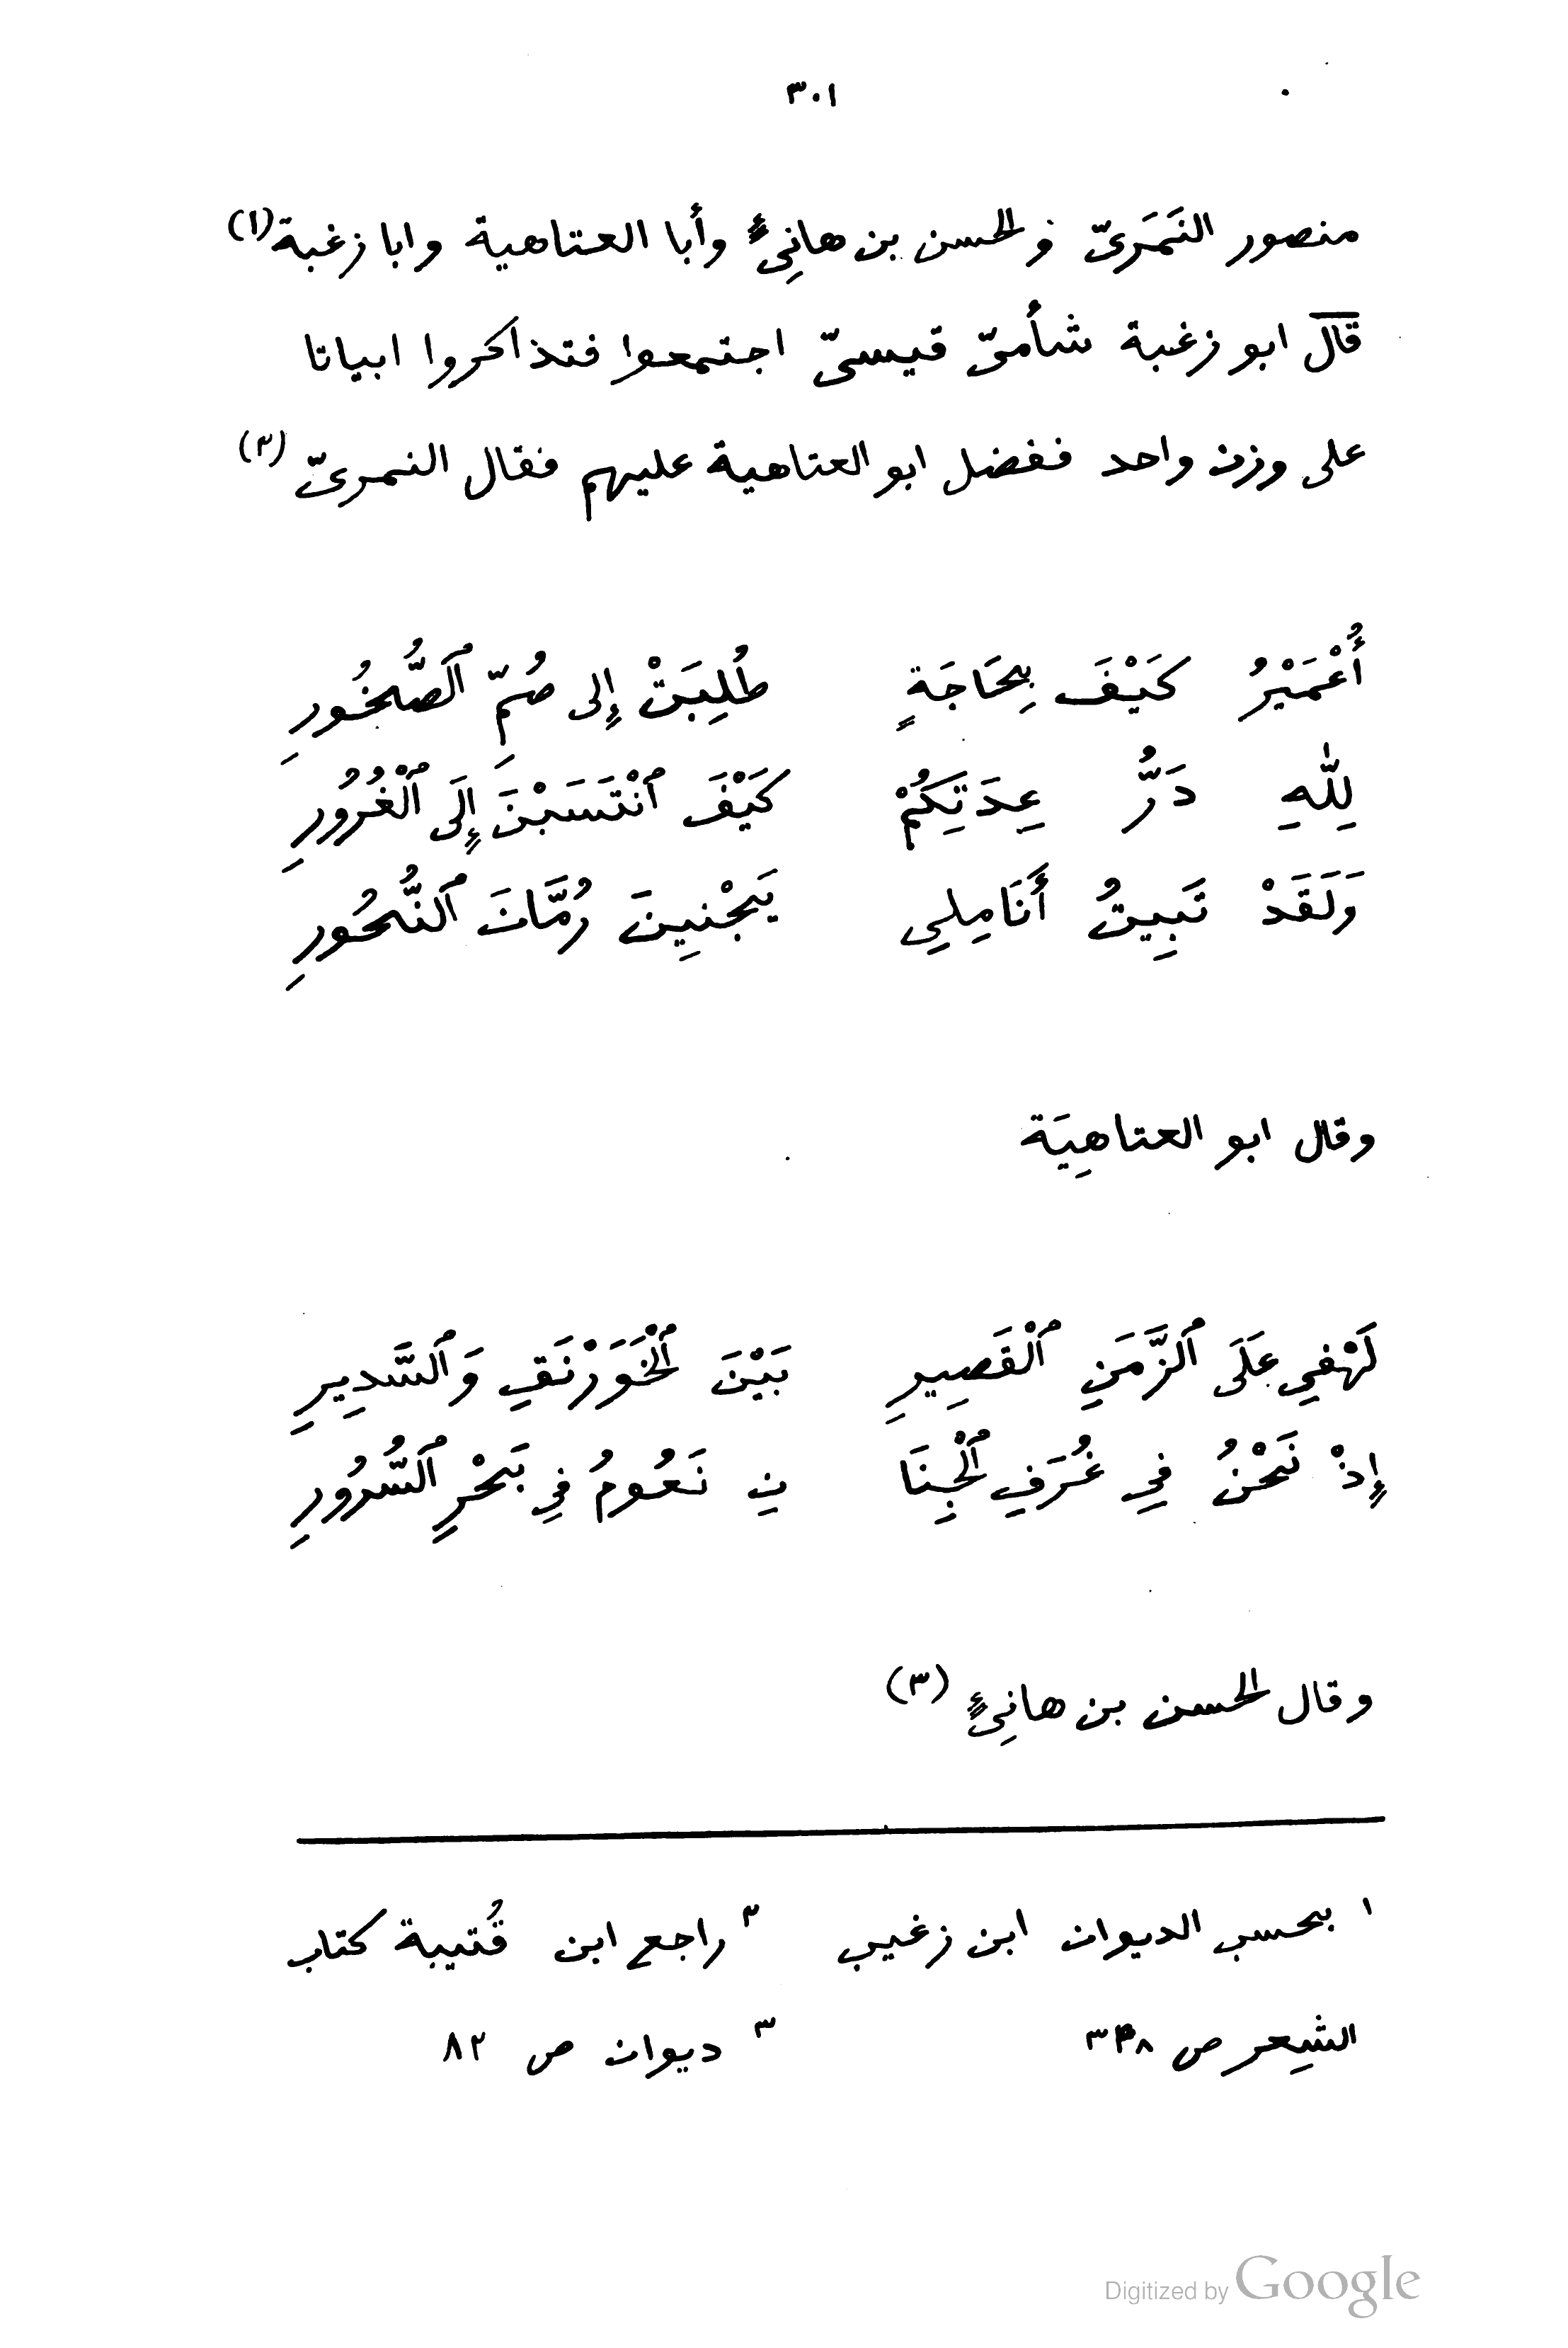 ٣٠١
منصور النَمَرىّ والحسن بن هانِئٍ وأبا العتاهية وابا زغبة (١)
قال ابو زغبة شأمىّ قيسىّ اجتمعوا فتذاكروا ابياتا
على وزن واحد ففضل ابو العتاهية عليهم فقال النمرىّ (٢)
أُعْمَيْرُ كَيْفَ بِحَاجَةٍ طُلِبَتْ إِلى صُمِّ ٱلصُّخُورِ
لِلّٰهِ دَرُّ عِدَتِكُمْ كَيْفَ ٱنْتَسَبْنَ إِلَى ٱلْغُرُورِ
وَلَقَدْ تَبِيتُ أَنَامِلِي يَجْنِينَ رُمَّانَ ٱلنُّحُورِ
وقال ابو العتاهِيَة
لَهْفِي عَلَى ٱلزَّمَنِ ٱلْقَصِيرِ بَيْنَ ٱلْخَوَرْنَقِ وَٱلسَّدِيرِ
إِذْ نَحْنُ فِي غُرَفِ ٱلْجِنَا نِ نَعُومُ فِي بَحْرِ ٱلسُّرُورِ
وقال الحسن بن هانِئٍ (٣)
١ بحسب الديوان ابن زغيب ٢ راجع ابن قُتيبة كتاب
الشِعر ص ٣ ديوان ص ٨٢
Digitized by Google